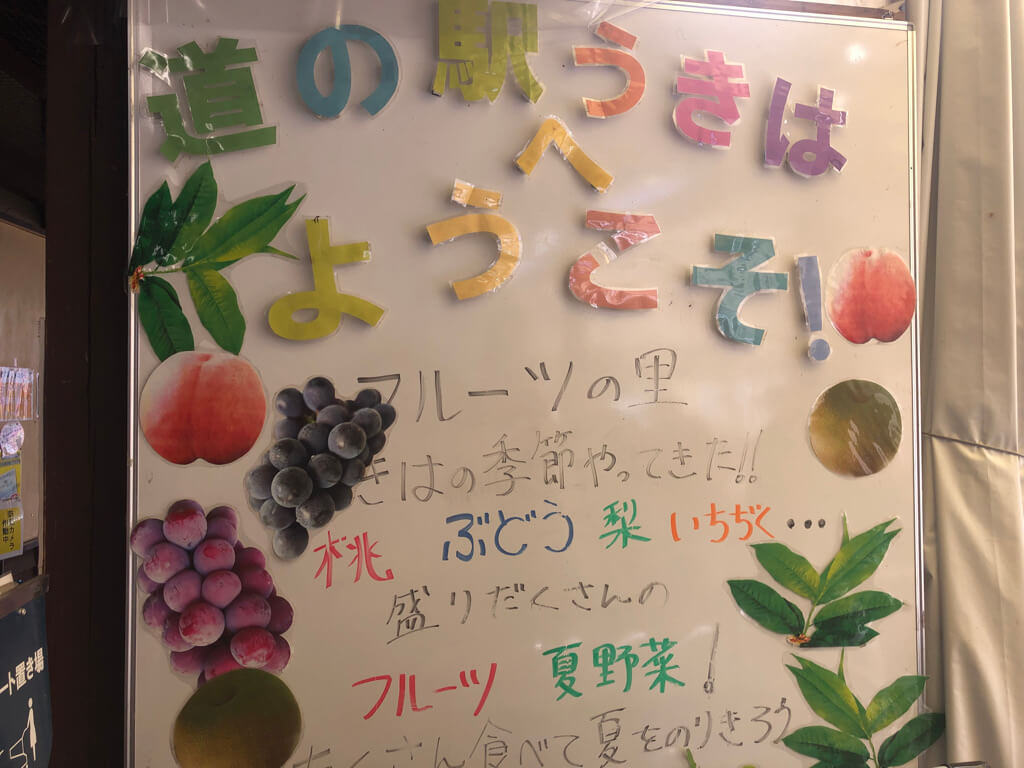 道の駅うきは
へ
ようこそ!
フルーツの里
きはの季節やってきた!!
桃 ぶどう 梨 いちぢく…
盛りだくさんの
フルーツ 夏野菜!
たくさん食べて夏をのりきろう
ート置き場